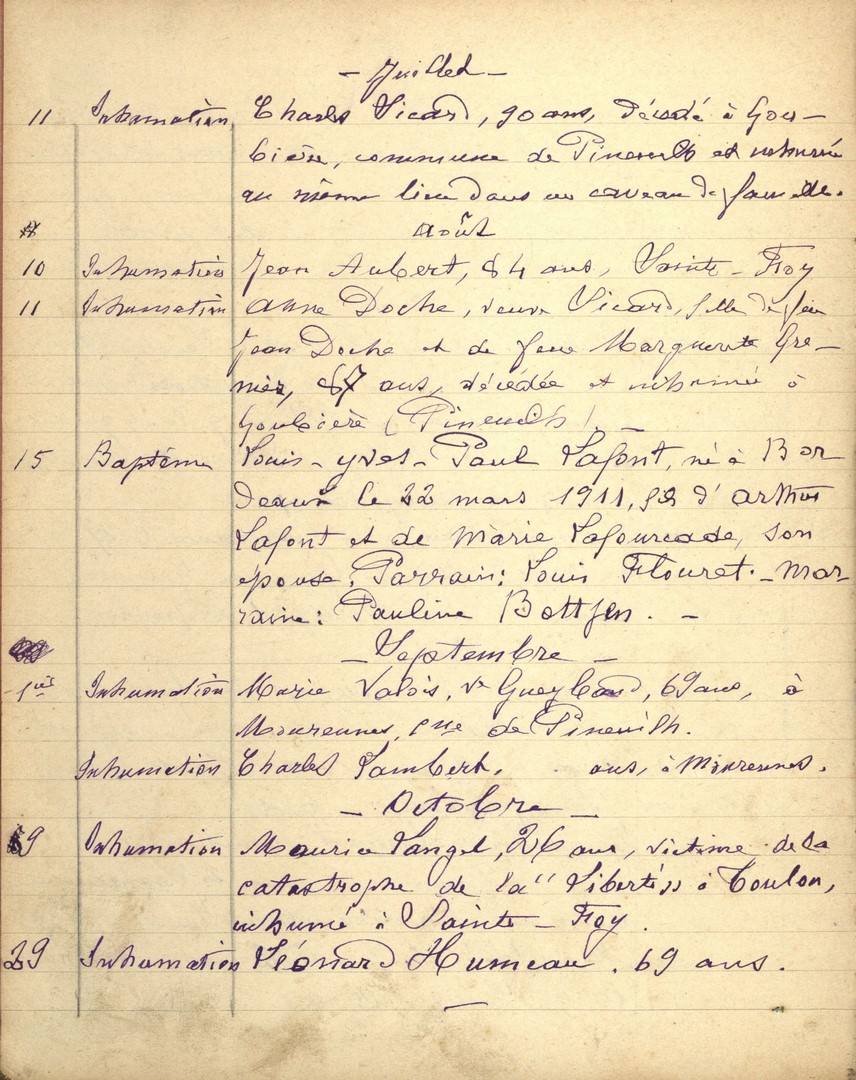 - Juillet -
11 Inhumation Charles Vicard, 90 ans, décédé à Gou-
bière, commune de Pineuilh et inhumé
au même lieu dans un caveau de famille.
Août
10 Inhumation Jean Aubert, 84 ans, Sainte-Foy
11 Inhumation Anne Doche, veuve Vicard, fille de feu
Jean Doche et de feue Marguerite Gre-
nier, 87 ans, décédée et inhumée à
Goubière (Pineuilh). -
15 Baptême Louis-Yves-Paul Lafont, né à Bor
deaux le 22 mars 1911, fils d'Arthur
Lafont et de Marie Lafourcade, son
épouse. Parrain: Louis Flouret. - Mar-
raine: Pauline -
- Septembre -
1er Inhumation Marie Valois, Ve 69 ans, à
Mourennes, Cne de Pineuilh.
Inhumation Charles Lambert, ans, à Mourennes.
- Octobre -
9 Inhumation Maurice Langel, 26 ans, victime de la
catastrophe de la "Liberté" à Toulon,
inhumé à Sainte-Foy.
29 Inhumation Léonard Humeau. 69 ans.
-